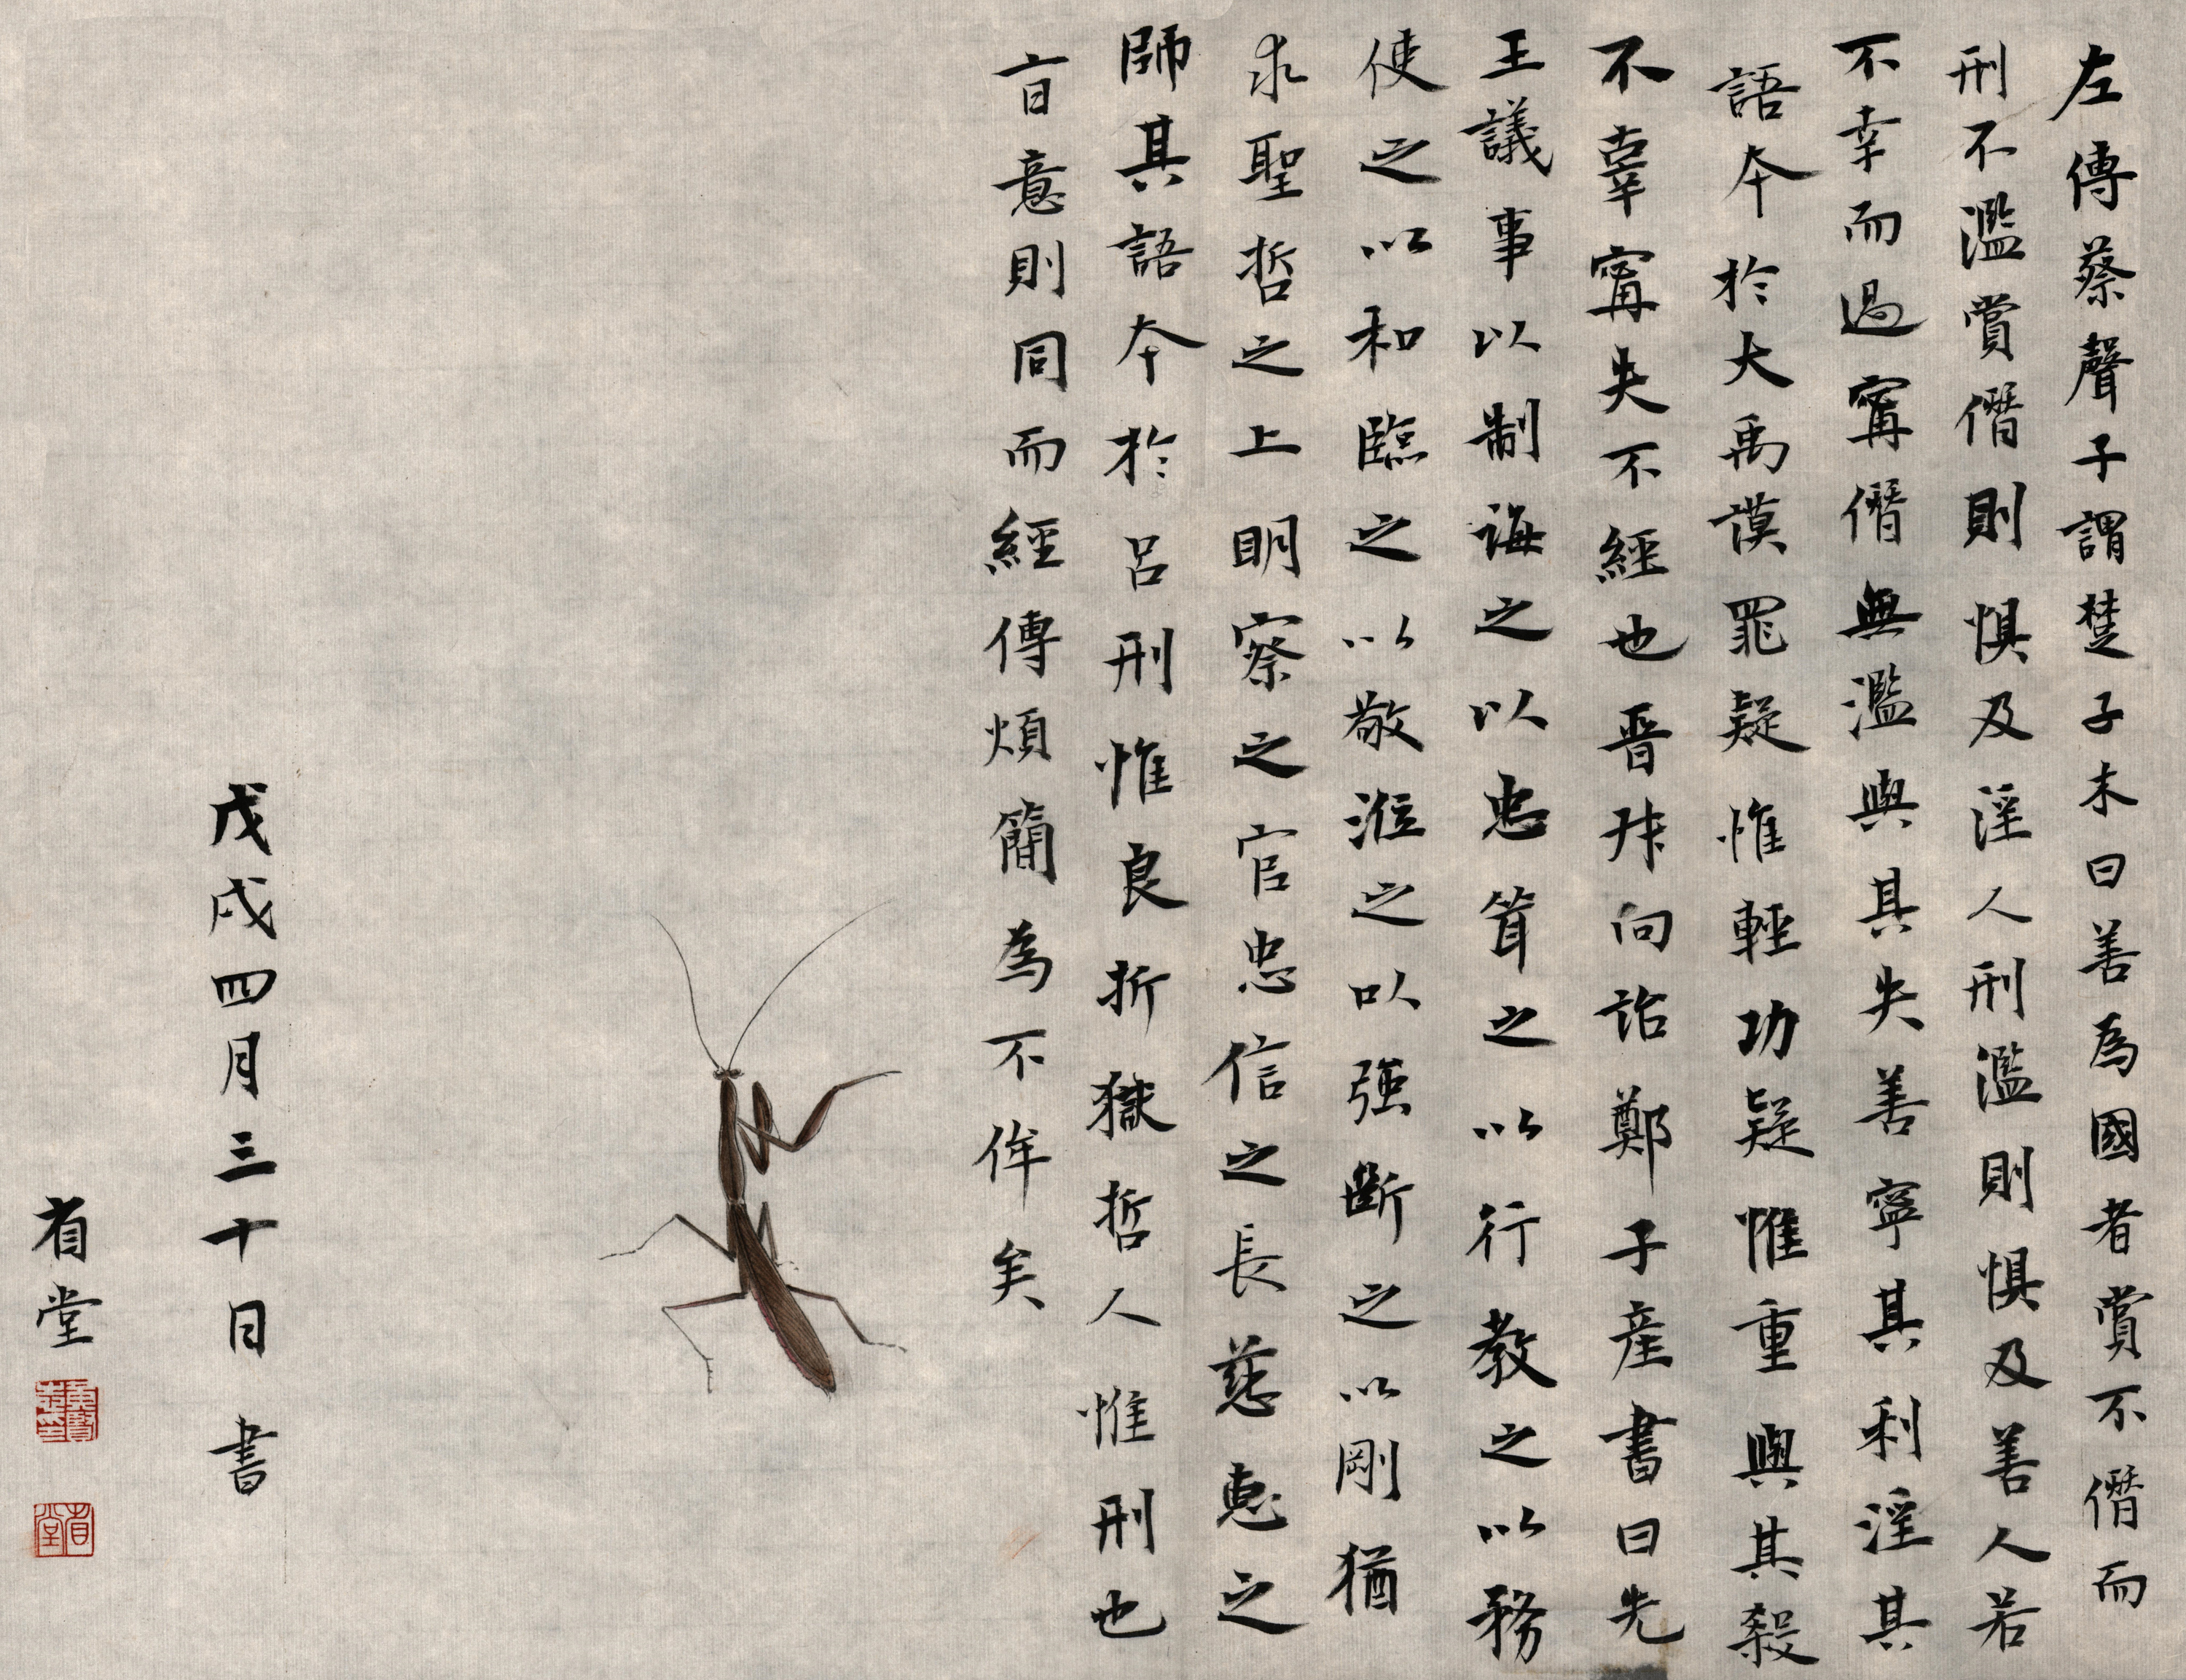 左傳蔡聲子謂楚子木曰善為國者賞不僭而
刑不濫賞僭則懼及淫人刑濫則懼及善人若
不幸而過寗僭無濫與其失善寧其利淫其
語本於大禹謨罪疑惟輕功疑惟重與其殺
不辜寗失不經也晉叔向詒鄭子產書曰先
王議事以制誨之以忠聳之以行教之以務
使之以和臨之以敬涖之以强斷之以剛猶
求聖哲之上明察之官忠信之長慈惠之
師其語本於呂刑惟良折獄哲人惟刑也
旨意則同而經傳煩簡為不侔矣
戊戌四月三十日 書
省堂
省堂